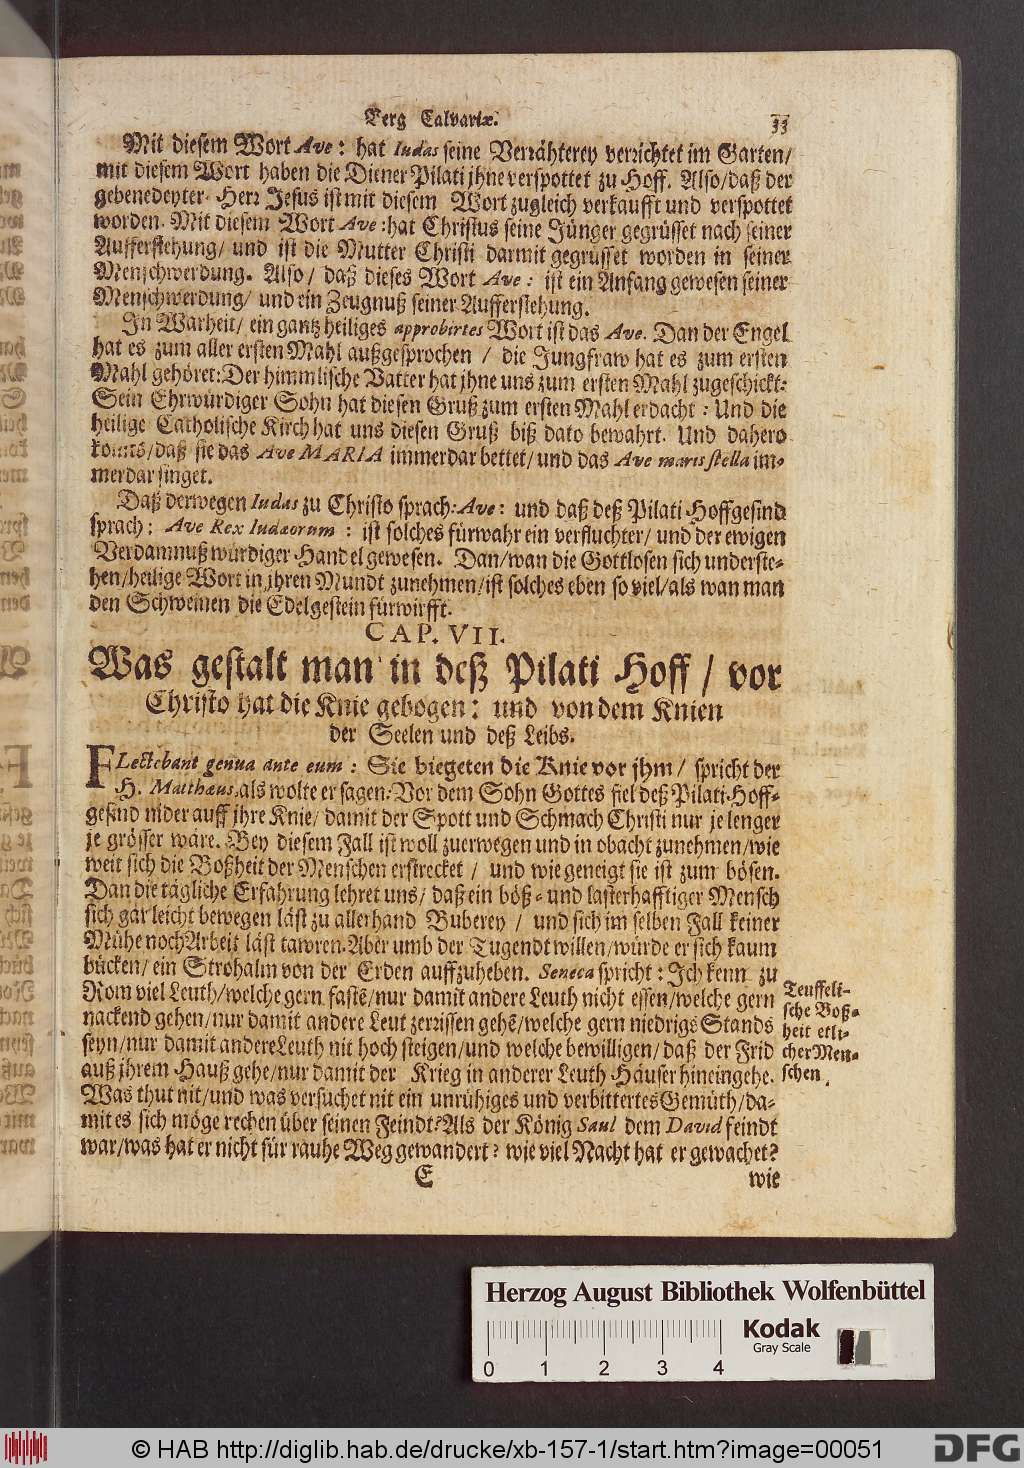 Berg Calvariæ. 33
Mit diesem Wort Ave: hat Iudas seine Verrähterey verrichtet im Garten/
mit diesem Wort haben die Diener Pilati jhne verspottet zu Hoff. Also/daß der
gebenedeyter Herr Jesus ist mit diesem Wort zugleich verkaufft und verspottet
worden. Mit diesem Wort Ave: hat Christus seine Jünger gegrüsset nach seiner
Aufferstehung/ und ist die Mutter Christi darmit gegrüsset worden in seiner
Menschwerdung. Also/ daß dieses Wort Ave: ist ein Anfang gewesen seiner
Menschwerdung/ und ein Zeugnuß seiner Aufferstehung.
In Warheit/ ein gantz heiliges approbirtes Wort ist das Ave. Dan der Engel
hat es zum aller ersten Mahl außgesprochen / die Jungfraw hat es zum ersten
Mahl gehöret: Der himmlische Vatter hat jhne uns zum ersten Mahl zugeschickt:
Sein Ehrwürdiger Sohn hat diesen Gruß zum ersten Mahl erdacht: Und die
heilige Catholische Kirch hat uns diesen Gruß biß dato bewahrt. Und dahero
komts/daß sie das Ave MARIA immerdar bettet/ und das Ave maris stella im-
merdar singet.
Daß derwegen Iudas zu Christo sprach: Ave: und daß deß Pilati Hoffgesind
sprach: Ave Rex Iudæorum : ist solches fürwahr ein verfluchter/ und der ewigen
Verdamnuß würdiger Handel gewesen. Dan/wan die Gottlosen sich underste-
hen/heilige Wort in jhren Mundt zunehmen/ist solches eben so viel/als wan man
den Schweinen die Edelgestein fürwirfft.
CAP. VII.
Was gestalt man in deß Pilati Hoff / vor
Christo hat die Knie gebogen: und von dem Knien
der Seelen und deß Leibs.
FLectebant genua ante eum : Sie biegeten die Knie vor jhm/ spricht der
H. Matthæus, als wolte er sagen: Vor dem Sohn Gottes fiel deß Pilati Hoff-
gesind nider auff jhre Knie/ damit der Spott und Schmach Christi nur je lenger
je grösser wäre. Bey diesem Fall ist woll zuerwegen und in obacht zunehmen/wie
weit sich die Boßheit der Menschen erstrecket / und wie geneigt sie ist zum bösen.
Dan die tägliche Erfahrung lehret uns/ daß ein böß- und lasterhafftiger Mensch
sich gar leicht bewegen läst zu allerhand Buberey / und sich im selben Fall keiner
Mühe noch Arbeit läst tawren. Aber umb der Tugendt willen/würde er sich kaum
bücken/ ein Strohalm von der Erden auffzuheben. Seneca spricht: Ich kenn zu
Rom viel Leuth/welche gern fastē/nur damit andere Leuth nicht essen/welche gern
nackend gehen/nur damit andere Leut zerrissen gehē/welche gern niedrigs Stands
seyn/nur damit andere Leuth nit hoch steigen/und welche bewilligen/daß der Frid
auß jhrem Hauß gehe/nur damit der Krieg in anderer Leuth Häuser hineingehe.
Was thut nit/und was versuchet nit ein unrühiges und verbittertes Gemüth/da-
mit es sich möge rechen über seinen Feindt? Als der König Saul dem David feindt
war/was hat er nicht für rauhe Weg gewandert? wie viel Nacht hat er gewachet?
E wie
Teuffeli-
sche Boß-
heit etli-
cher Men-
schen.
Herzog August Bibliothek Wolfenbüttel
Kodak
Gray Scale
0 1 2 3 4
© HAB http://diglib.hab.de/drucke/xb-157-1/start.htm?image=00051
DFG